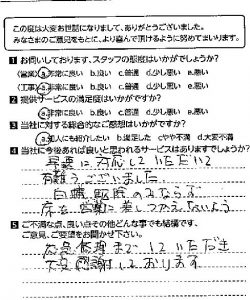 この度は大変お世話になりまして、ありがとうございました。
みなさまのご意見をもとに、より喜んで頂けるように努めてまいります。
1 お伺いしております、スタッフの態度はいかがでしょうか?
(営業) a.非常に良い b.良い c.普通 d.少し悪い e.悪い
(工事) a.非常に良い b.良い c.普通 d.少し悪い e.悪い
2 提供サービスの満足度はいかがですか?
a.非常に良い b.良い c.普通 d.少し悪い e.悪い
3 当社に対する総合的なご感想はいかがですか?
a.知人にも紹介したい b.満足した c.やや不満 d.大変不満
4 当社に今後あれば良いと思われるサービスはありますでしょうか?
早急に対応していただいて
有難うございました。
のみならず
床も営業に差しつかえないよう
5 ご不満な点、良い点その他どんな事でも結構です、
ご意見、ご要望をお聞かせ下さい。
応急修理までしていただき
大変感謝しております